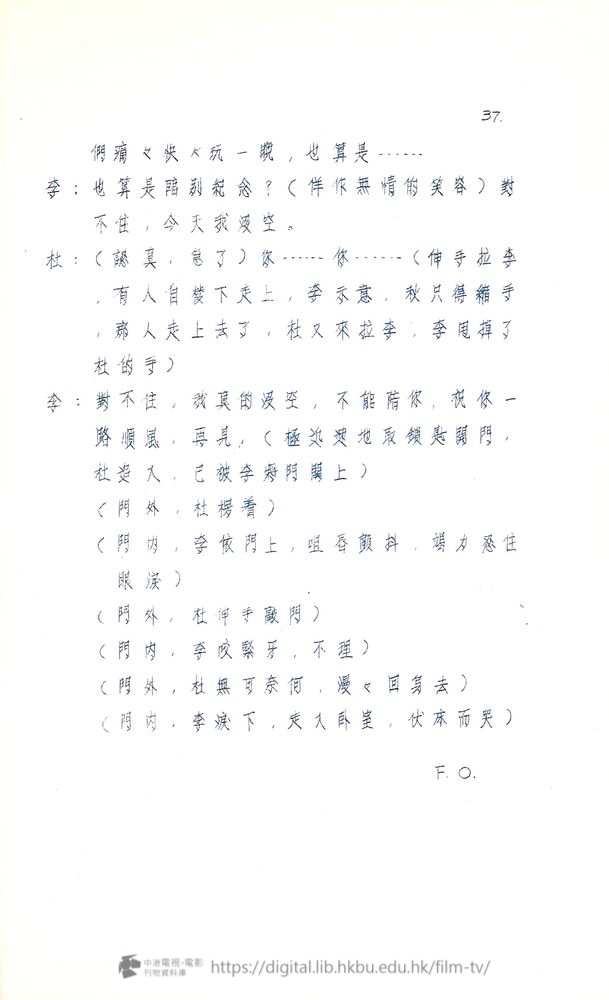 37.
們痛々快々玩一晚，也算是……
李：也算是臨別紀念？（佯作無情的笑容）對
不住，今天我沒空。
杜：（認真，急了）你……你……（伸手拉李
，有人自樓下走上，李示意，秋只得縮手
，那人走上去了，杜又來拉李，李甩掉了
杜的手）
李：對不住，我真的沒空，不能陪你，祝你一
路順風，再見。（極迅速地取鎖匙開門，
杜追入，已被李將門關上）
（門外，杜楞着）
（門內，李依門上，咀唇顫抖，竭力忍住
眼淚）
（門外，杜伸手敲門）
（門內，李咬緊牙，不理）
（門外，杜無可奈何，漫々回身去）
（門內，李淚下，走入卧室，伏床而哭）
F. O.
中港電視·電影
刊物資料庫
https://digital.lib.hkbu.edu.hk/film-tv/